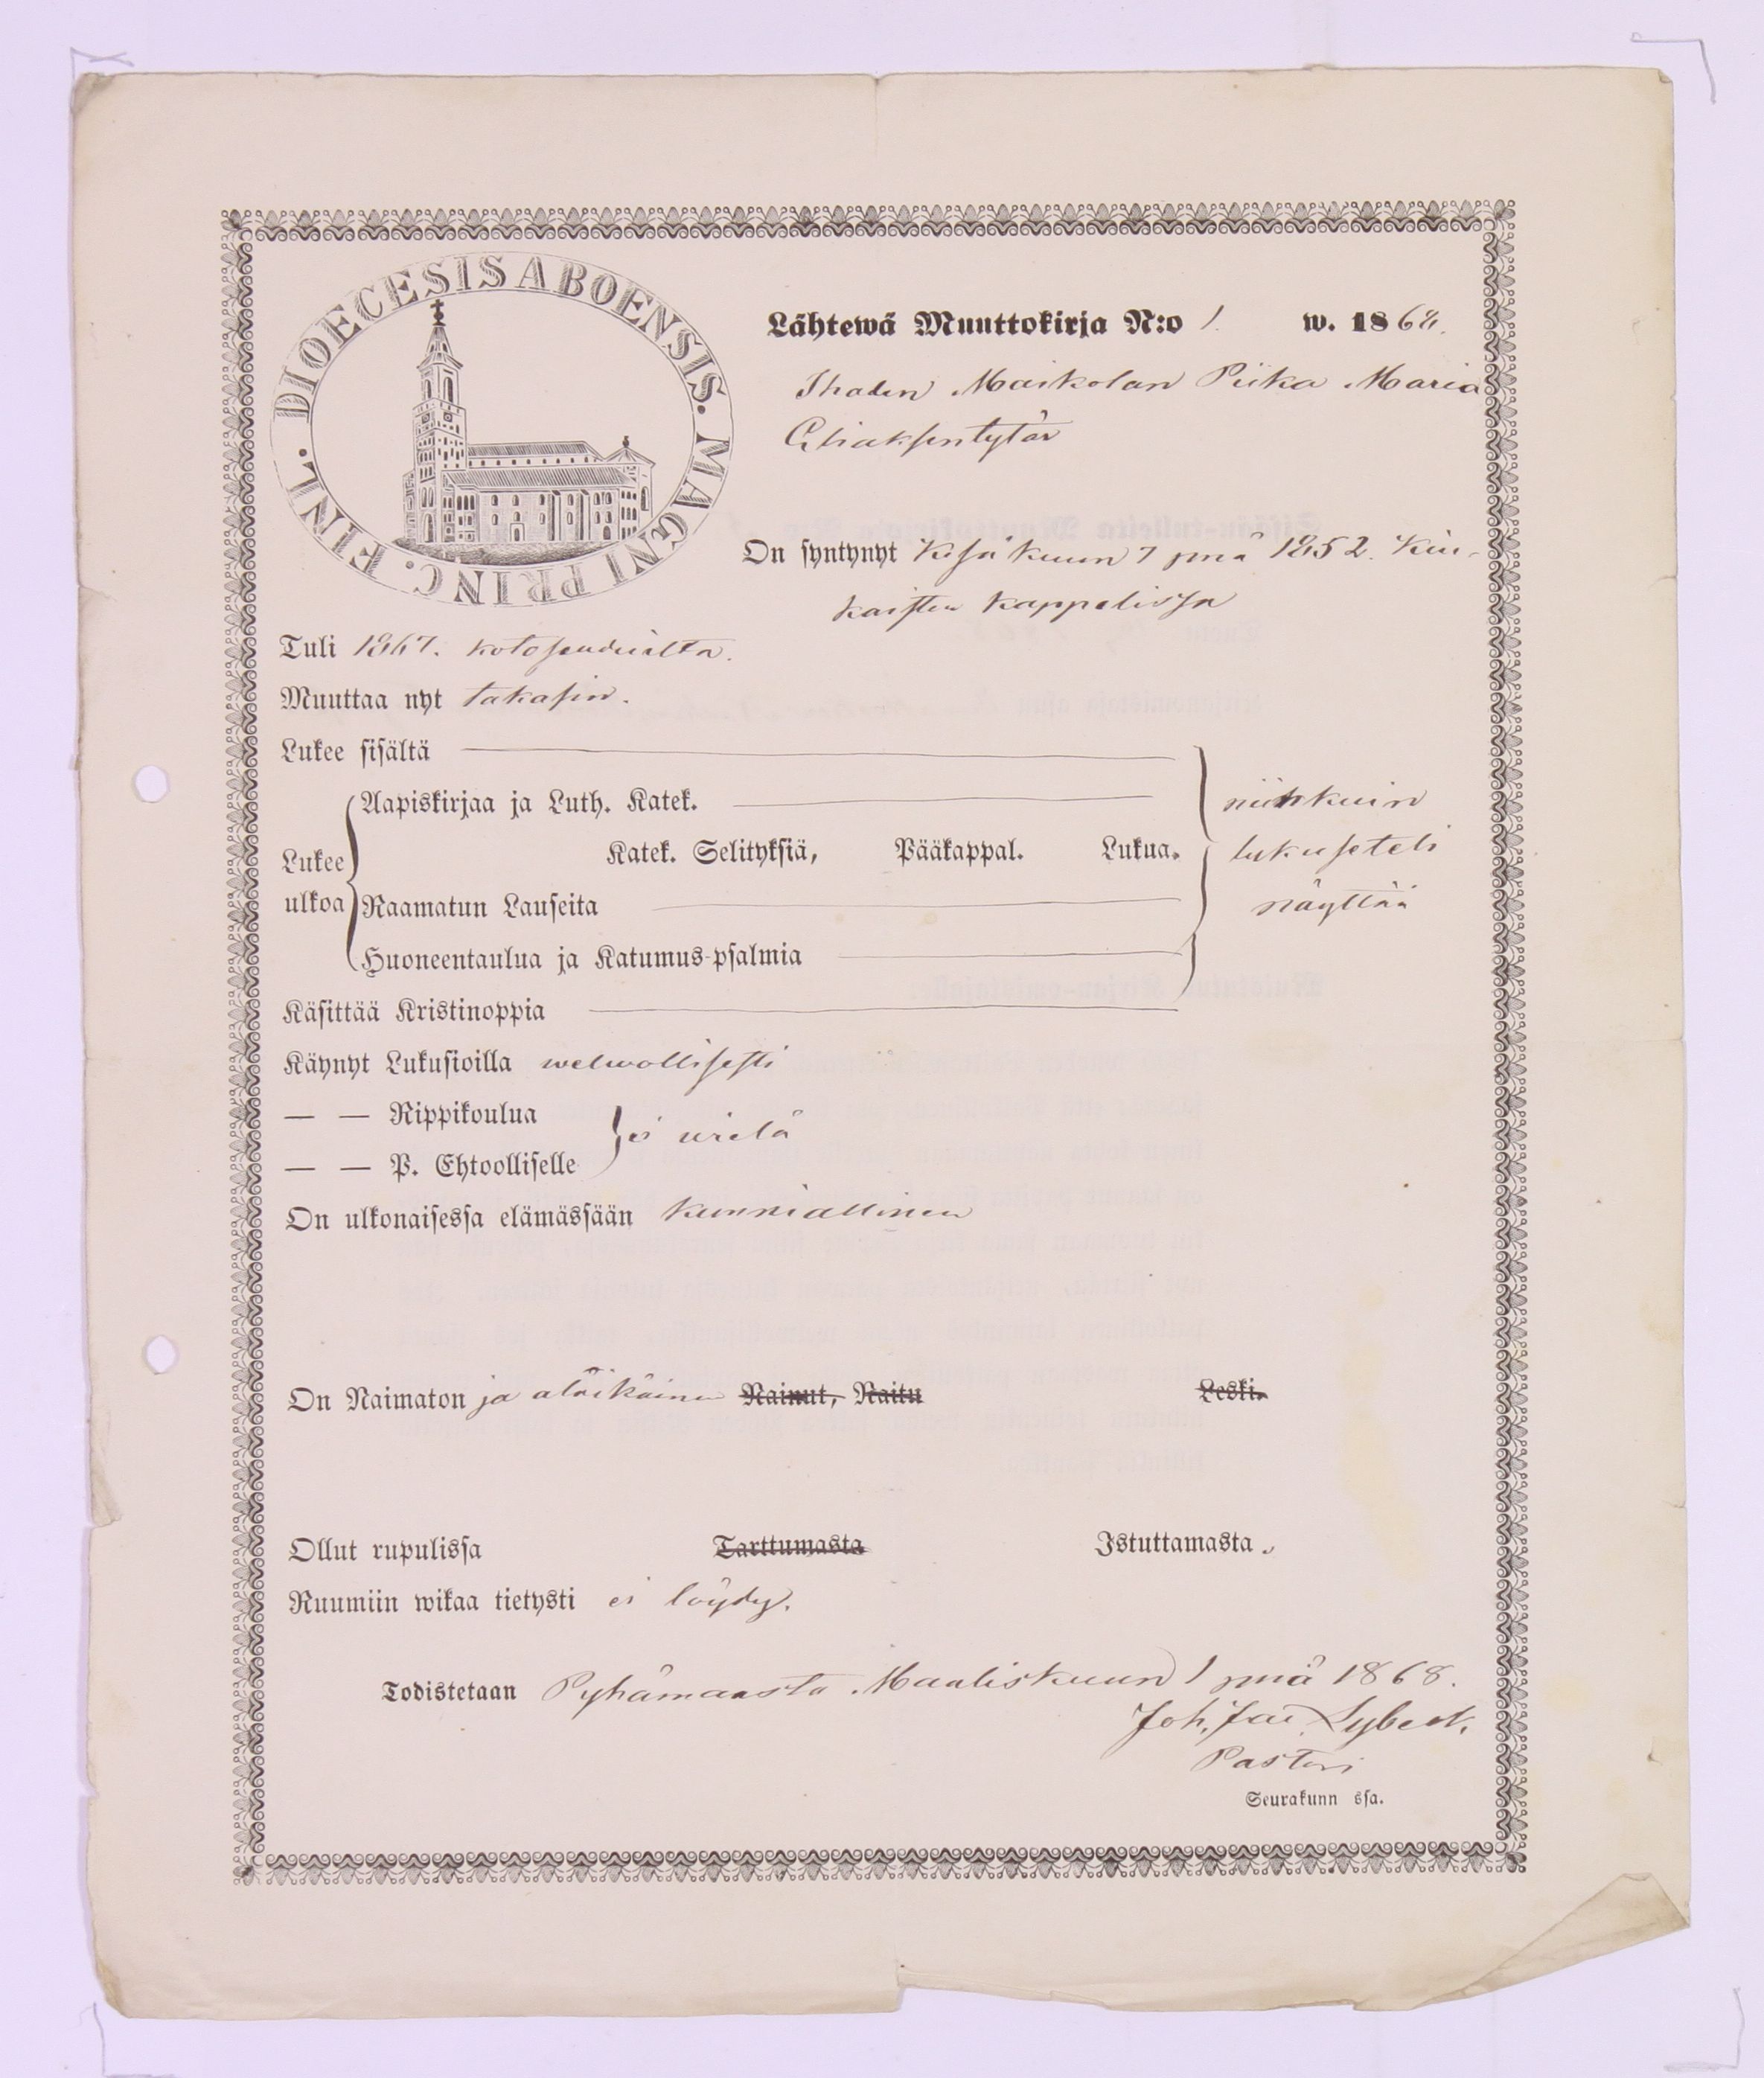 DIOECESIS ABOENSIS. MAGNI PRINC. FINL.
Lähtewä Muuttokirja N:o 1. w. 1868.
Ihoden Maikolan Piika Maria
Eliaksentytär
On syntynyt Kesäkuun 7 pnä 1852. Kiu-
kaisten kappelissa
Tuli 1867. kotoseuduilta.
Muuttaa nyt takasin.
Lukee sisältä
Aapiskirjaa ja Luth. Katek.
niinkuin
Lukee ulkoa
Katek. Selityksiä, Pääkappal. Lukua.
lukuseteli
Raamatun Lauseita
näyttää
Huoneentaulua ja Katumus-psalmia
Käsittää Kristinoppia
Käynyt Lukusioilla welwollisesti
— — Rippikoulua
ei wielä
— — P. Ehtoolliselle
On ulkonaisessa elämässään kunniallinen
On Naimaton ja aläikäinen Nainut, Naitu Leski.
Ollut rupulissa Tarttumasta Istuttamasta.
Ruumiin wikaa tietysti ei löydy.
Todistetaan Pyhämaasta Maaliskuun 1 pnä 1868.
Joh. Fai Lybeck.
Pastori
Seurakunn ssa.